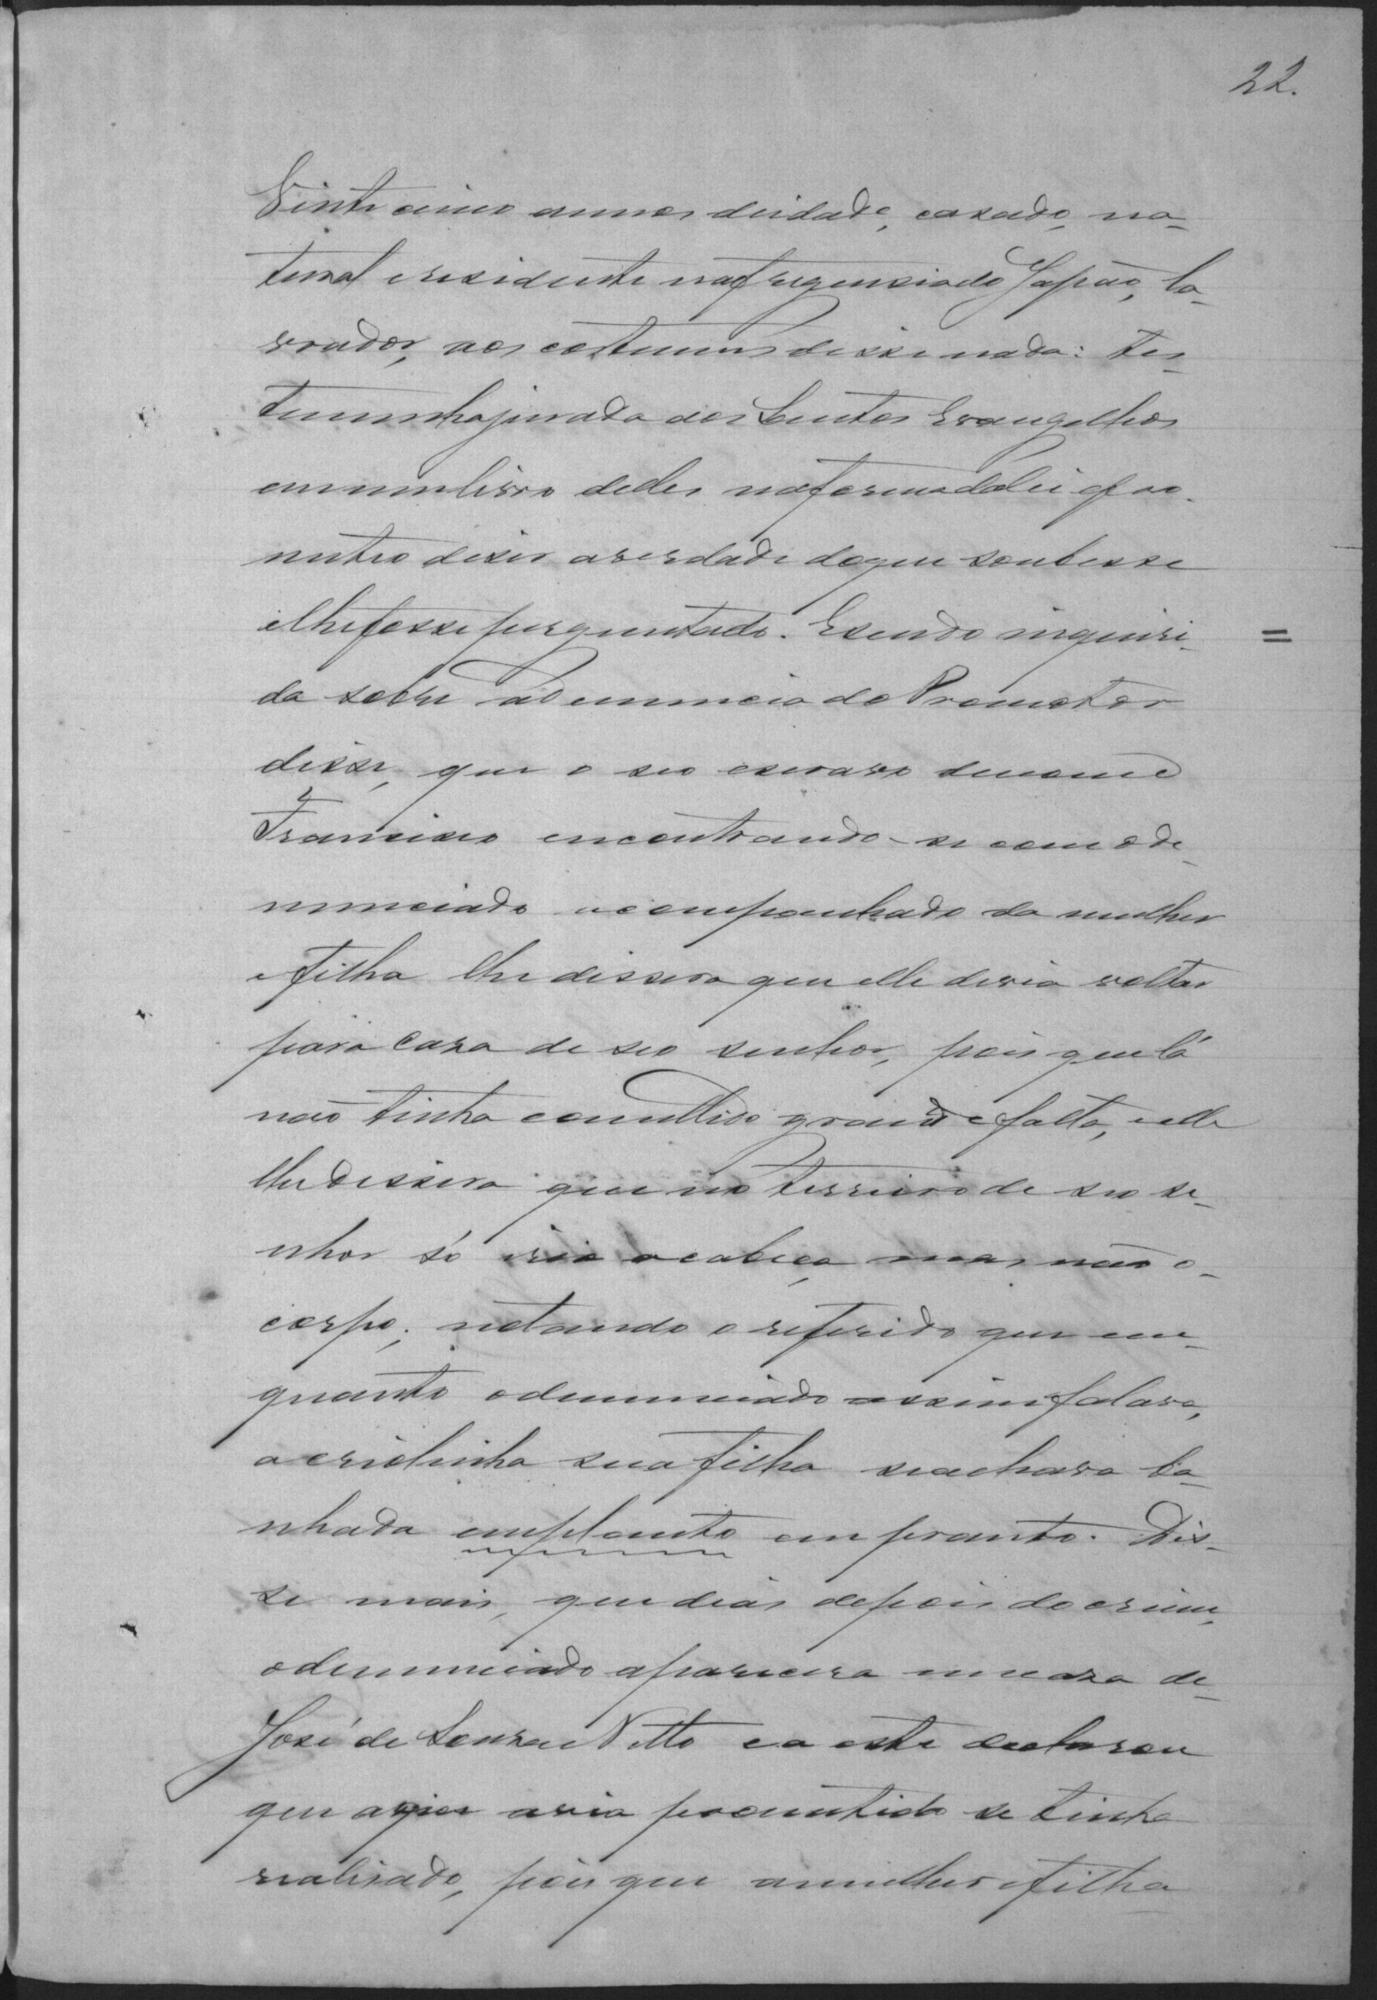 22.
Vinte cinco annos deidade, casado, na-
tural eresidente nafreguesiado Japão, la-
vrador, aos costumes disse nada: tes-
temunhajurada aos Santos Evangelhos
emumlivro delles naformadalei pro-
metteo diser averdade doque soubesse
elhefosseperguntado. Esendo inqueri-
da sobre adenuncia do Promotor
disse, que o seo escravo denome
Francisco encontrando-se com o de-
nunciado acompanhado da mulher
e filha lhe dissera que elle devia voltar
para casa de seo senhor, pois que lá
não tinha comettido grande falta, e elle
lhe dissera que no terreiro de seo se-
nhor só iria acabeça mas não o-
corpo; notando o referido que em-
quanto odenunciado assim falava,
a criolinha sua filha seachava ba-
nhada emplanto em pranto. Dis-
se mais, que dias depois do crime,
odenunciado aparecera em casa de
José de Souza e Netto e a este declarou
que o que avia promettido se tinha
realisado, pois que amulher efilha